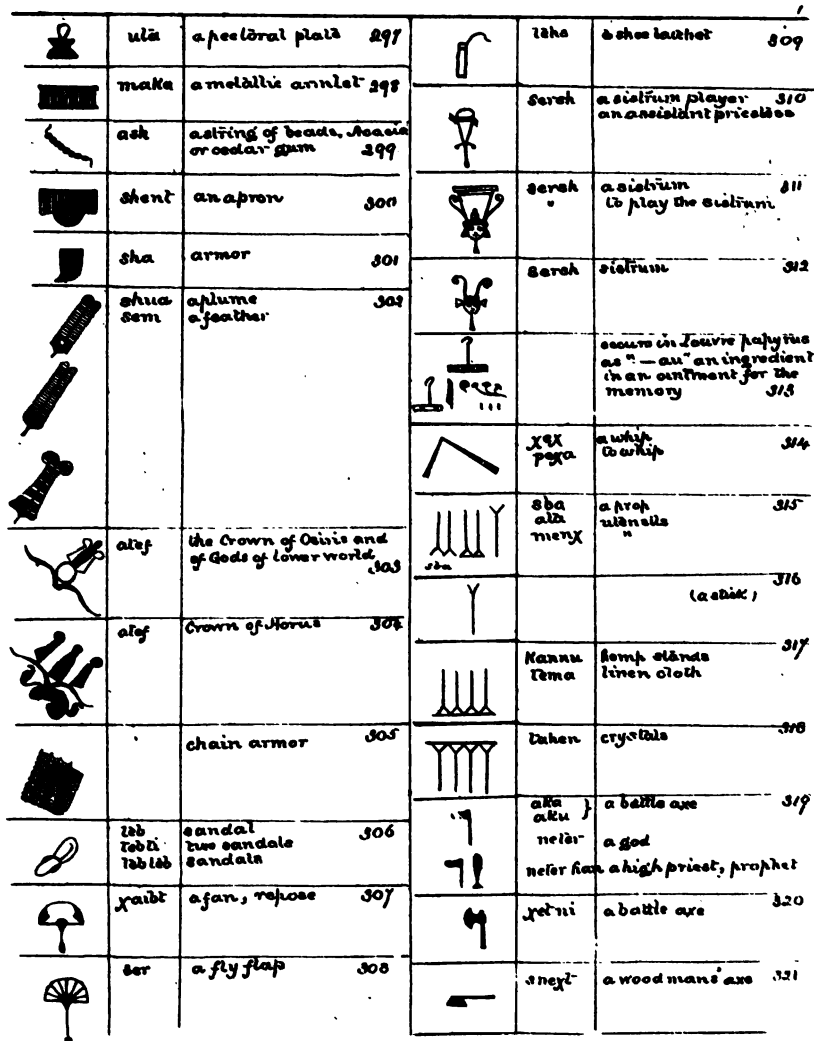 utà a pectoral plate 297
maka a metallic armlet 298
ask a string of beads, Acacia
or cedar gum 299
shent an apron 300
sha armor 301
shua a plume 302
sem a feather
atef the Crown of Osiris and
of Gods of lower world
303
atef Crown of Horus 304
chain armor 305
teb sandal 306
tebti two sandals
tebteb sandals
χaibt a fan, repose 307
ser a fly flap 308
a shoe latchet 309
sersh a sistrum player 310
an assistant priestess
sersh a sistrum 311
" to play the sistrum
sersh sistrum 312
occurs in Louvre papyrus
as "— au" an ingredient
in an ointment for the
memory 313
a whip 314
peχa to whip
sba a prop 315
ata utensils
menχ "
sba
316
(a stick)
317
Kannu hemp stands
tema linen cloth
318
tahen crystals
aka } a battle axe 319
aku
neter a god
neter han a high priest, prophet
χetni a battle axe 320
sneχt a woodmans' axe 321